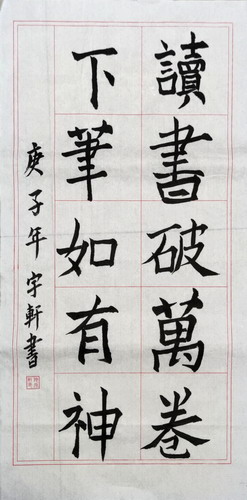 讀書破萬卷
下筆如有神
庚子年宇軒書